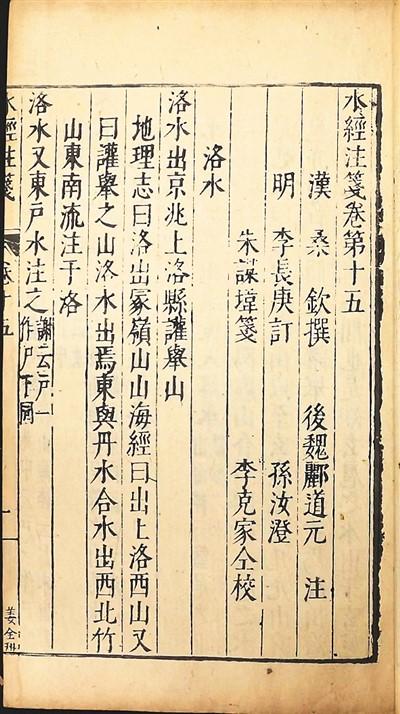 水經注箋卷第十五
漢 桑 欽撰 後魏酈道元 注
明 李長庚訂 孫汝澄
朱謀㙔箋 李克家仝校
洛水
洛水出京兆上洛縣讙舉山
地理志曰洛出冢嶺山山海經曰出上洛西山又
曰讙舉之山洛水出焉東與丹水合水出西北竹
山東南流注于洛
洛水又東戶水注之
謝云戶一
作尸下同
水經注箋 卷十五 一